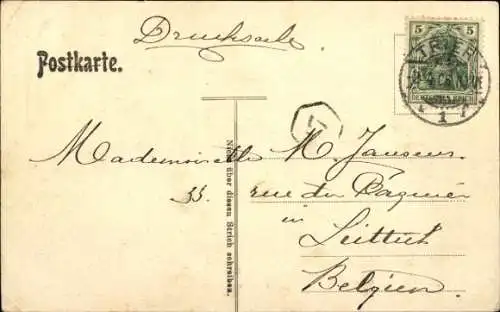 Drucksache
Postkarte.
5 5
TRIER
DEUTSCHES REICH
1
Mademoiselle M. Janssens
33. rue du
in
Lüttich
Belgien
Nicht über diesen Strich schreiben.